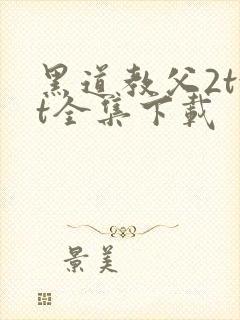 黑道教父2t
t全集下载
景美